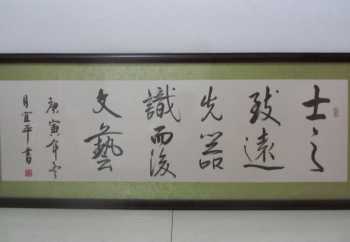 士之
致遠
先器
識而後
文藝
庚寅年冬
月宜平書